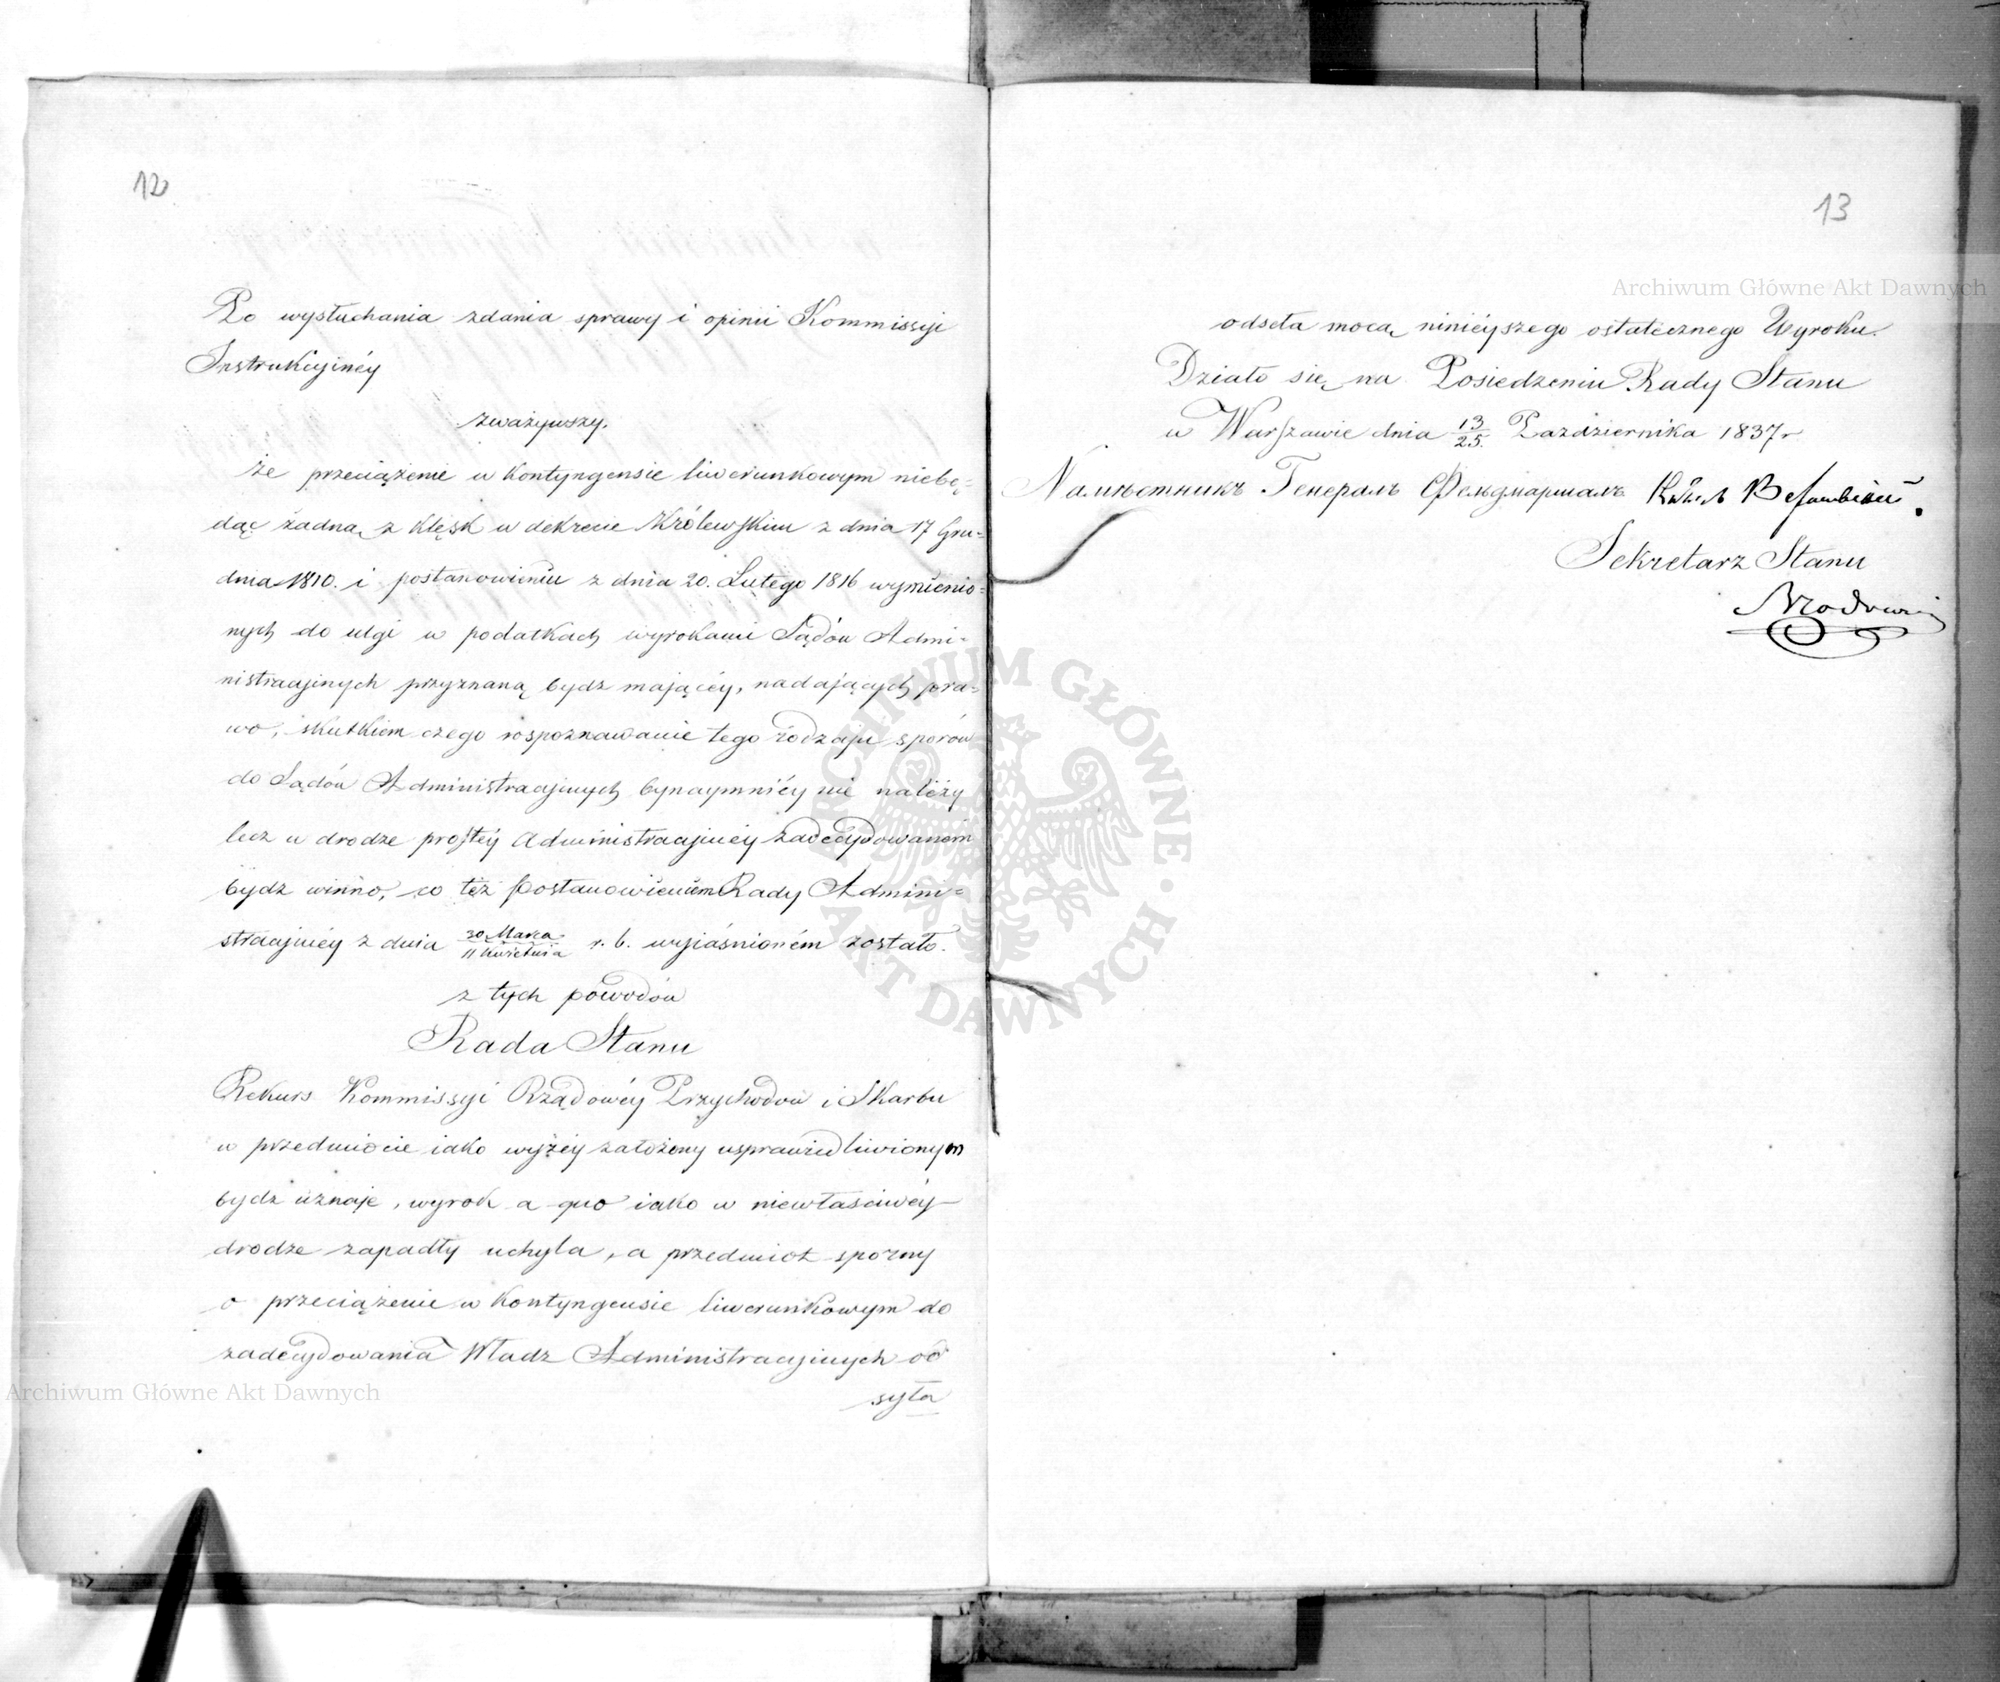 12
Po wysłuchania zdania sprawy i opinii Kommissyi
Instrukcyinéy
zważywszy,
że przeciążenie w kontyngensie liwerunkowym niebę-
dąc żadną z klęsk w dekrecie Królewskim z dnia 17 Gru-
dnia 1810. i postanowieniu z dnia 20. Lutego 1816 wymienio-
nych do ulgi w podatkach wyrokami Sądów Admi-
nistracyinych przyznaną bydz mającéy, nadających pra-
wo, skutkiem czego rospoznawanie tego rodzaju sporów
do Sądów Administracyinych bynaymniéy nie należy
lecz w drodze prostéy administracyinéy zadecydowaném
bydz winno, co téż Postanowieniem Rady Admini-
stracyinéy z dnia 30 Marca / 11 Kwietnia r. b. wyiaśnioném zostało.
z tych powodów
Rada Stanu
Rekurs Kommissyi Rządowéy Przychodów i Skarbu
w przedmiocie iako wyżéy założony usprawiedliwionym
bydz uznaje, wyrok a quo iako w niewłaściwéy
drodze zapadły uchyla, a przedmiot sporny
o przeciążenie w kontyngensie liwerunkowym do
zadecydowania Władz Administracyinych od
syła
13
odseła mocą ninieyszego ostatecznego Wyroku.
Działo się na Posiedzeniu Rady Stanu
w Warszawie dnia 13/25. Pazdziernika 1837 r
Намѣстникъ Генералъ Фельдмаршалъ
Sekretarz Stanu
Archiwum Główne Akt Dawnych
Archiwum Główne Akt Dawnych
ARCHIWUM GŁÓWNE · AKT DAWNYCH ·